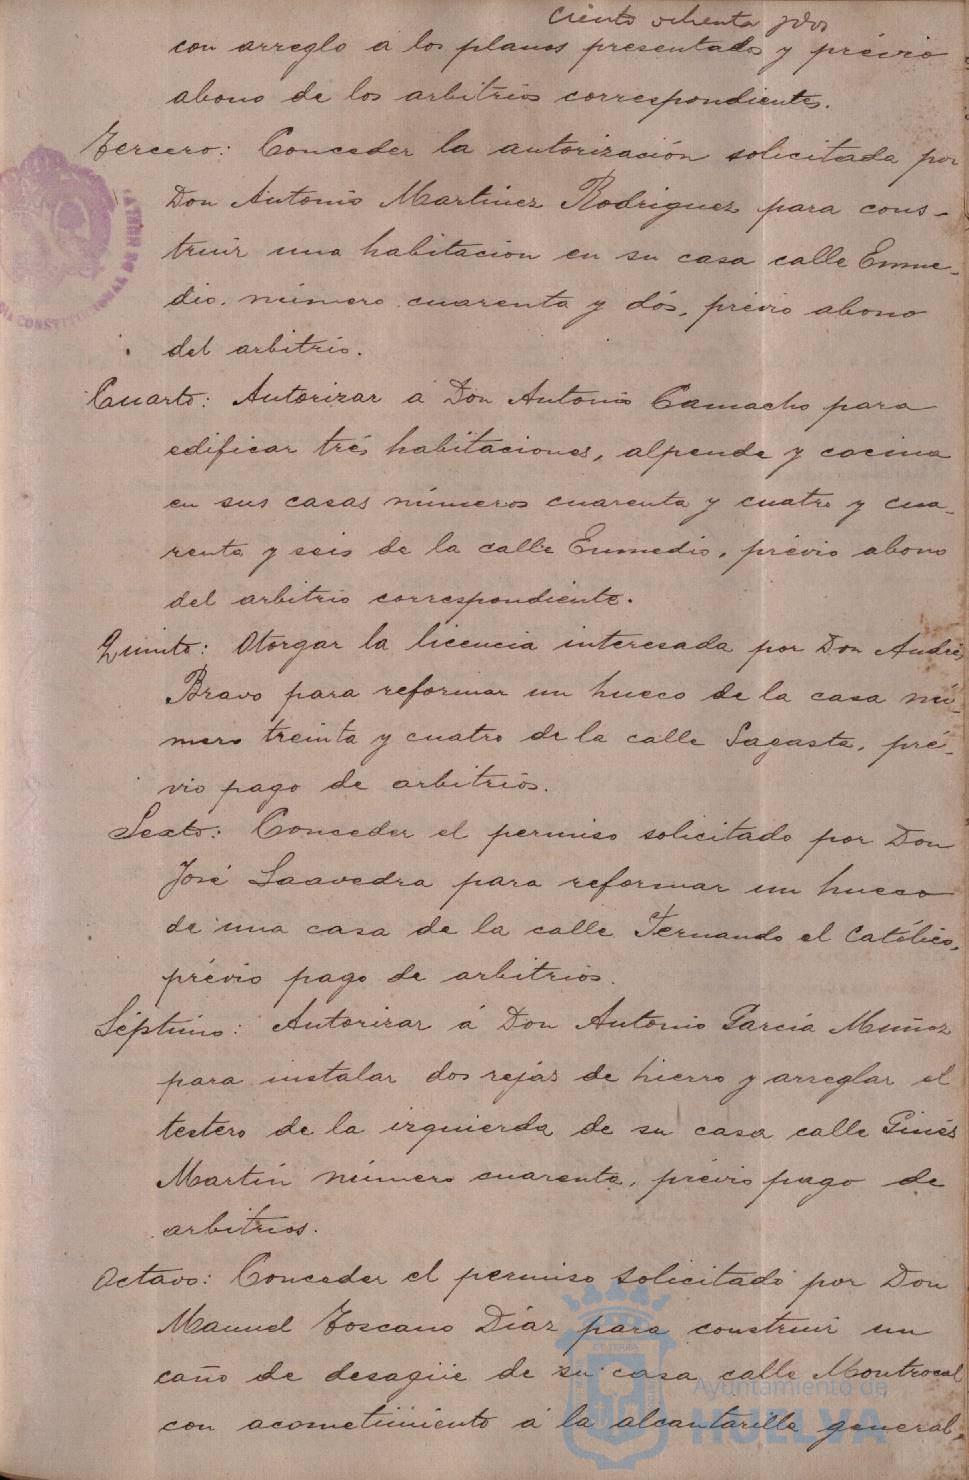 ciento ochenta y dos
con arreglo a los planos presentados y prévio
abono de los arbitrios correspondientes.
Tercero: Conceder la autorización solicitada por
Don Antonio Martinez Rodriguez para cons-
truir una habitación en su casa calle Enme-
dio, número cuarenta y dós, prévio abono
del arbitrio.
Cuarto: Autorizar a Don Antonio Camacho para
edificar trés habitaciones, alpende y cocina
en sus casas números cuarenta y cuatro y cua-
renta y seis de la calle Enmedio, prévio abono
del arbitrio correspondiente.
Quinto: Otorgar la licencia interesada por Don Andrés
Bravo para reformar un hueco de la casa nú-
mero treinta y cuatro de la calle Sagasta, pré-
vio pago de arbitrios.
Sexto: Conceder el permiso solicitado por Don
José Saavedra para reformar un hueco
de una casa de la calle Fernando el Católico,
prévio pago de arbitrios.
Séptimo: Autorizar á Don Antonio García Muñoz
para instalar dos rejas de hierro y arreglar el
testero de la izquierda de su casa calle Ginés
Martín número cuarenta, prévio pago de
arbitrios.
Octavo: Conceder el permiso solicitado por Don
Manuel Toscano Díaz para construir un
caño de desagüe de su casa calle Montrocal
con acometimiento á la alcantarilla general,
CONSTITUCIONAL DE HUELVA
Ayuntamiento de
HUELVA